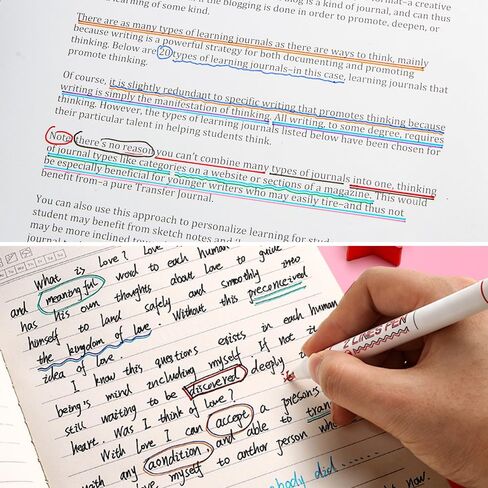 learning of some kind.
if the blogging is done in order to promote, deepen, or
There are as many types of learning journals as there are ways to think, mainly
because writing is a powerful strategy for both documenting and promoting
thinking. Below are 20 types of learning journals–in this case, learning journals that
promote thinking.
Of course, it is slightly redundant to specific writing that promotes thinking because
writing is simply the manifestation of thinking. All writing, to some degree, requires
thinking. However, the types of learning journals listed below have been chosen for
their particular talent in helping students think.
Note there's no reason you can't combine many types of journals into one, thinking
of journal types like categories on a website or sections of a magazine. This would
be especially beneficial for younger writers who may easily tire–and thus not
benefit from–a pure Transfer Journal.
You can also use this approach to personalize learning for
student may benefit from sketch notes and
may be more inclined
What is Love? Love
and meaningful word to each human
has his own thoughts about Love to guide
himself to land safely and smoothly into
the kingdom of love. Without this preconceived
idea of love.
I know this questions exists in each human
being's mind including myself. If not it
still waiting to be discovered deeply
heart. Was I think of love?
With Love I can accept a preson's
with any aondition, and able to
love myself to anthor person
body did......
now.
2 LINES PEN